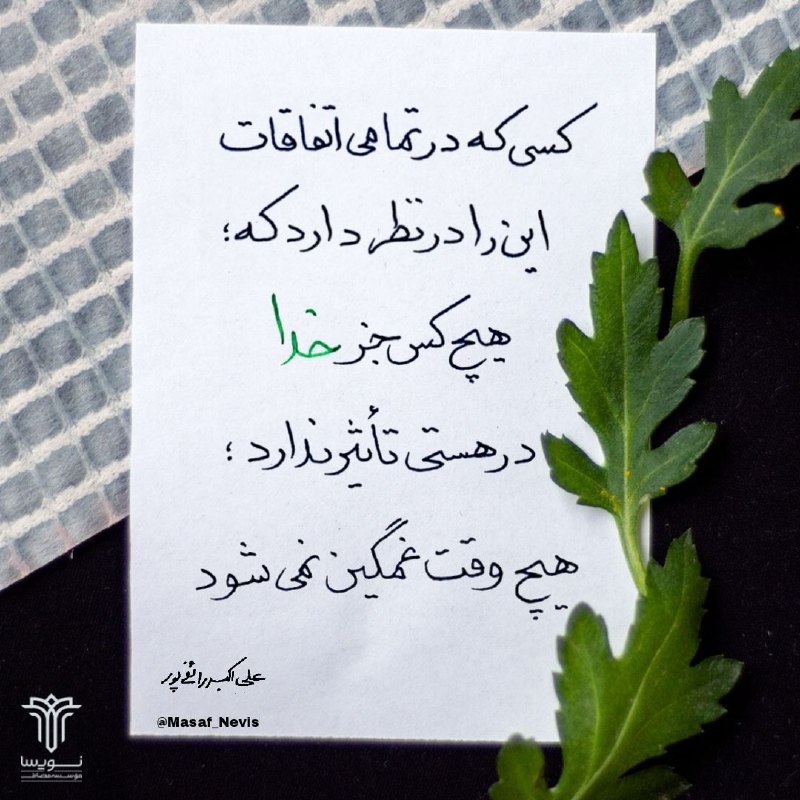 کسی که در تمامی اتفاقات
این را در نظر دارد که؛
هیچ کس جز خدا
در هستی تأثیر ندارد ؛
هیچ وقت غمگین نمی شود
علی اکبر رائفی پور
@Masaf_Nevis
نویسا
مؤسسه مصاف